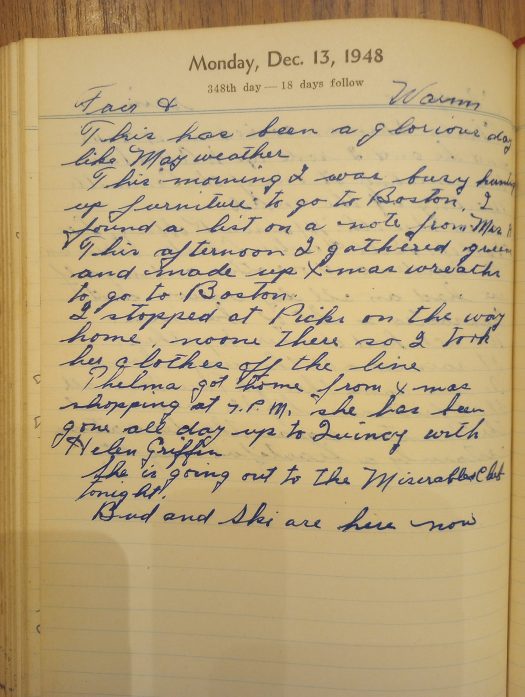 Monday, Dec. 13, 1948
348th day — 18 days follow
Fair & Warm
This has been a glorious day
like May weather
This morning I was busy
up furniture to go to Boston. I
found a list on a note from Mrs
This afternoon I gathered green
and made up Xmas wreaths
to go to Boston.
I stopped at Picks on the way
home noone there so I took
her clothes off the line
Thelma got home from Xmas
shopping at 7. P.M. she has been
gone all day up to Quincy with
Helen Griffin
She is going out to the Miserables Club
tonight.
Bud and Ski are here now